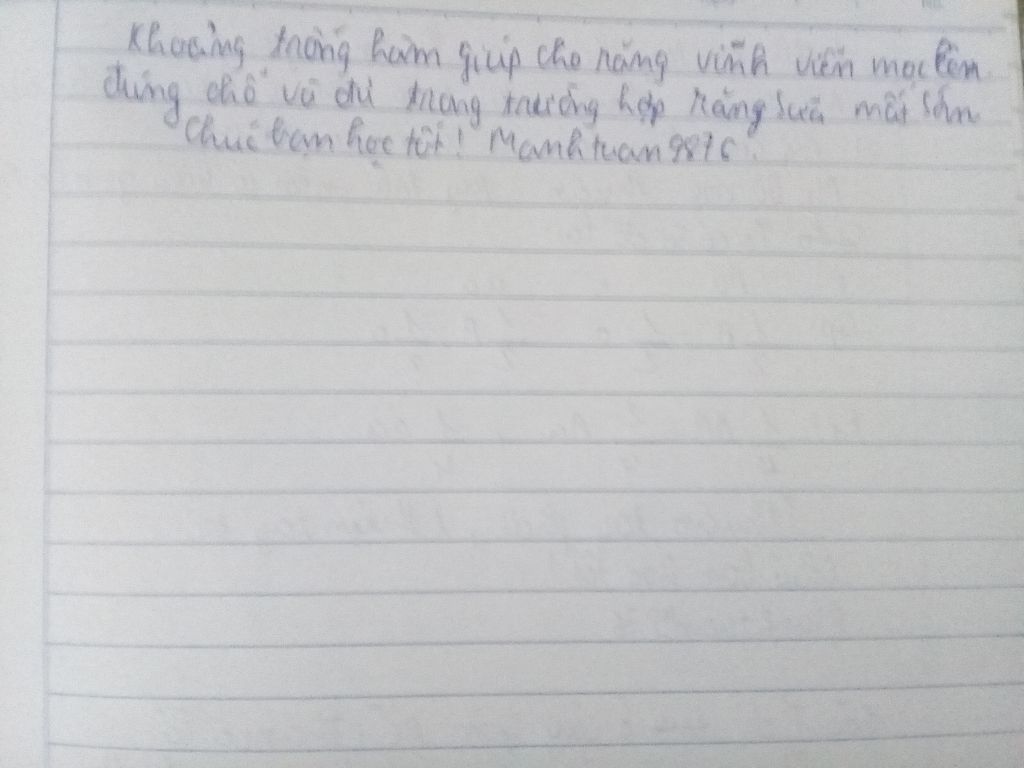 Khoảng trống hàm giúp cho răng vĩnh viễn mọc lên
đúng chỗ và đủ trong trường hợp răng sữa mất sớm
Chúc bạn học tốt! Manhtuan9876.